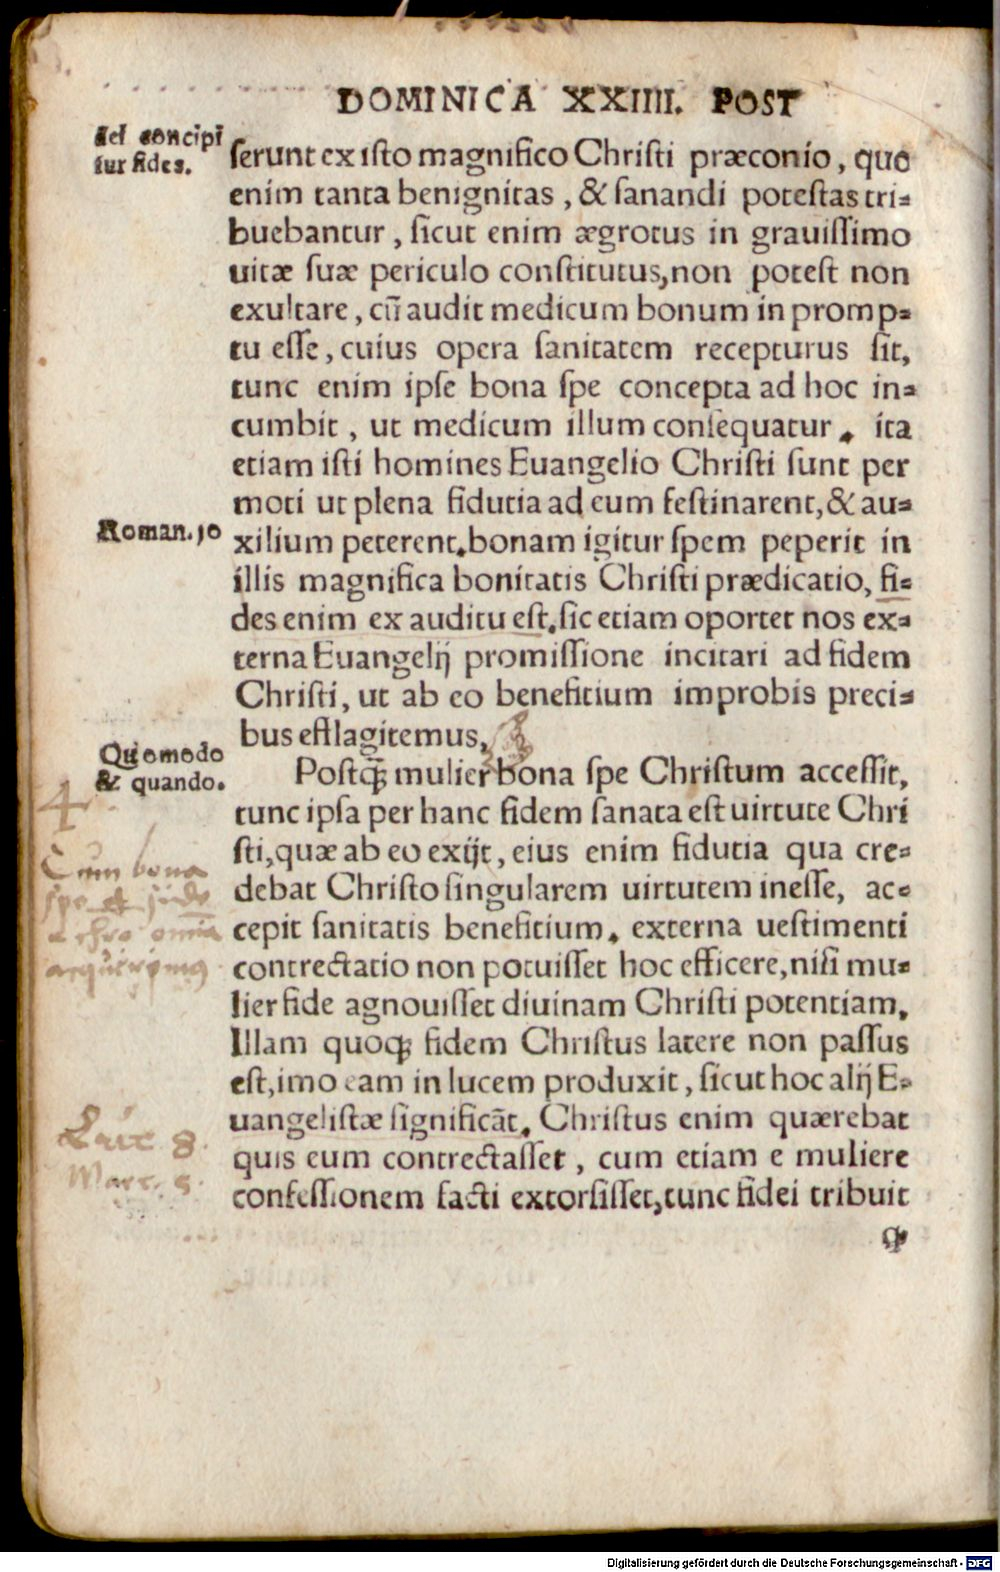 DOMINICA XXIIII. POST
sei concipi
tur fides.
serunt ex isto magnifico Christi præconio, quo
enim tanta benignitas, & sanandi potestas tri-
buebantur, sicut enim ægrotus in grauissimo
uitæ suæ periculo constitutus, non potest non
exultare, cū audit medicum bonum in promp-
tu esse, cuius opera sanitatem recepturus sit,
tunc enim ipse bona spe concepta ad hoc in-
cumbit, ut medicum illum consequatur. ita
etiam isti homines Euangelio Christi sunt per
moti ut plena fidutia ad eum festinarent, & au-
Roman. 10
xilium peterent. bonam igitur spem peperit in
illis magnifica bonitatis Christi prædicatio, fi-
des enim ex auditu est. sic etiam oportet nos ex-
terna Euangelij promissione incitari ad fidem
Christi, ut ab eo benefitium improbis preci-
bus efflagitemus.
Quomodo
& quando.
Postq̄ȝ mulier bona spe Christum accessit,
tunc ipsa per hanc fidem sanata est uirtute Chri
sti, quæ ab eo exijt, eius enim fidutia qua cre-
debat Christo singularem uirtutem inesse, ac-
cepit sanitatis benefitium. externa uestimenti
contrectatio non potuisset hoc efficere, nisi mu-
lier fide agnouisset diuinam Christi potentiam.
Illam quoqȝ fidem Christus latere non passus
est, imo eam in lucem produxit, sicut hoc alij E-
uangelistæ significāt. Christus enim quærebat
quis eum contrectasset, cum etiam e muliere
confessionem facti extorsisset, tunc fidei tribuit
4
Cum bona
spe et fide
a chro omnia
acquirimus
Luce 8.
Marc. 5.
Digitalisierung gefördert durch die Deutsche Forschungsgemeinschaft - DFG